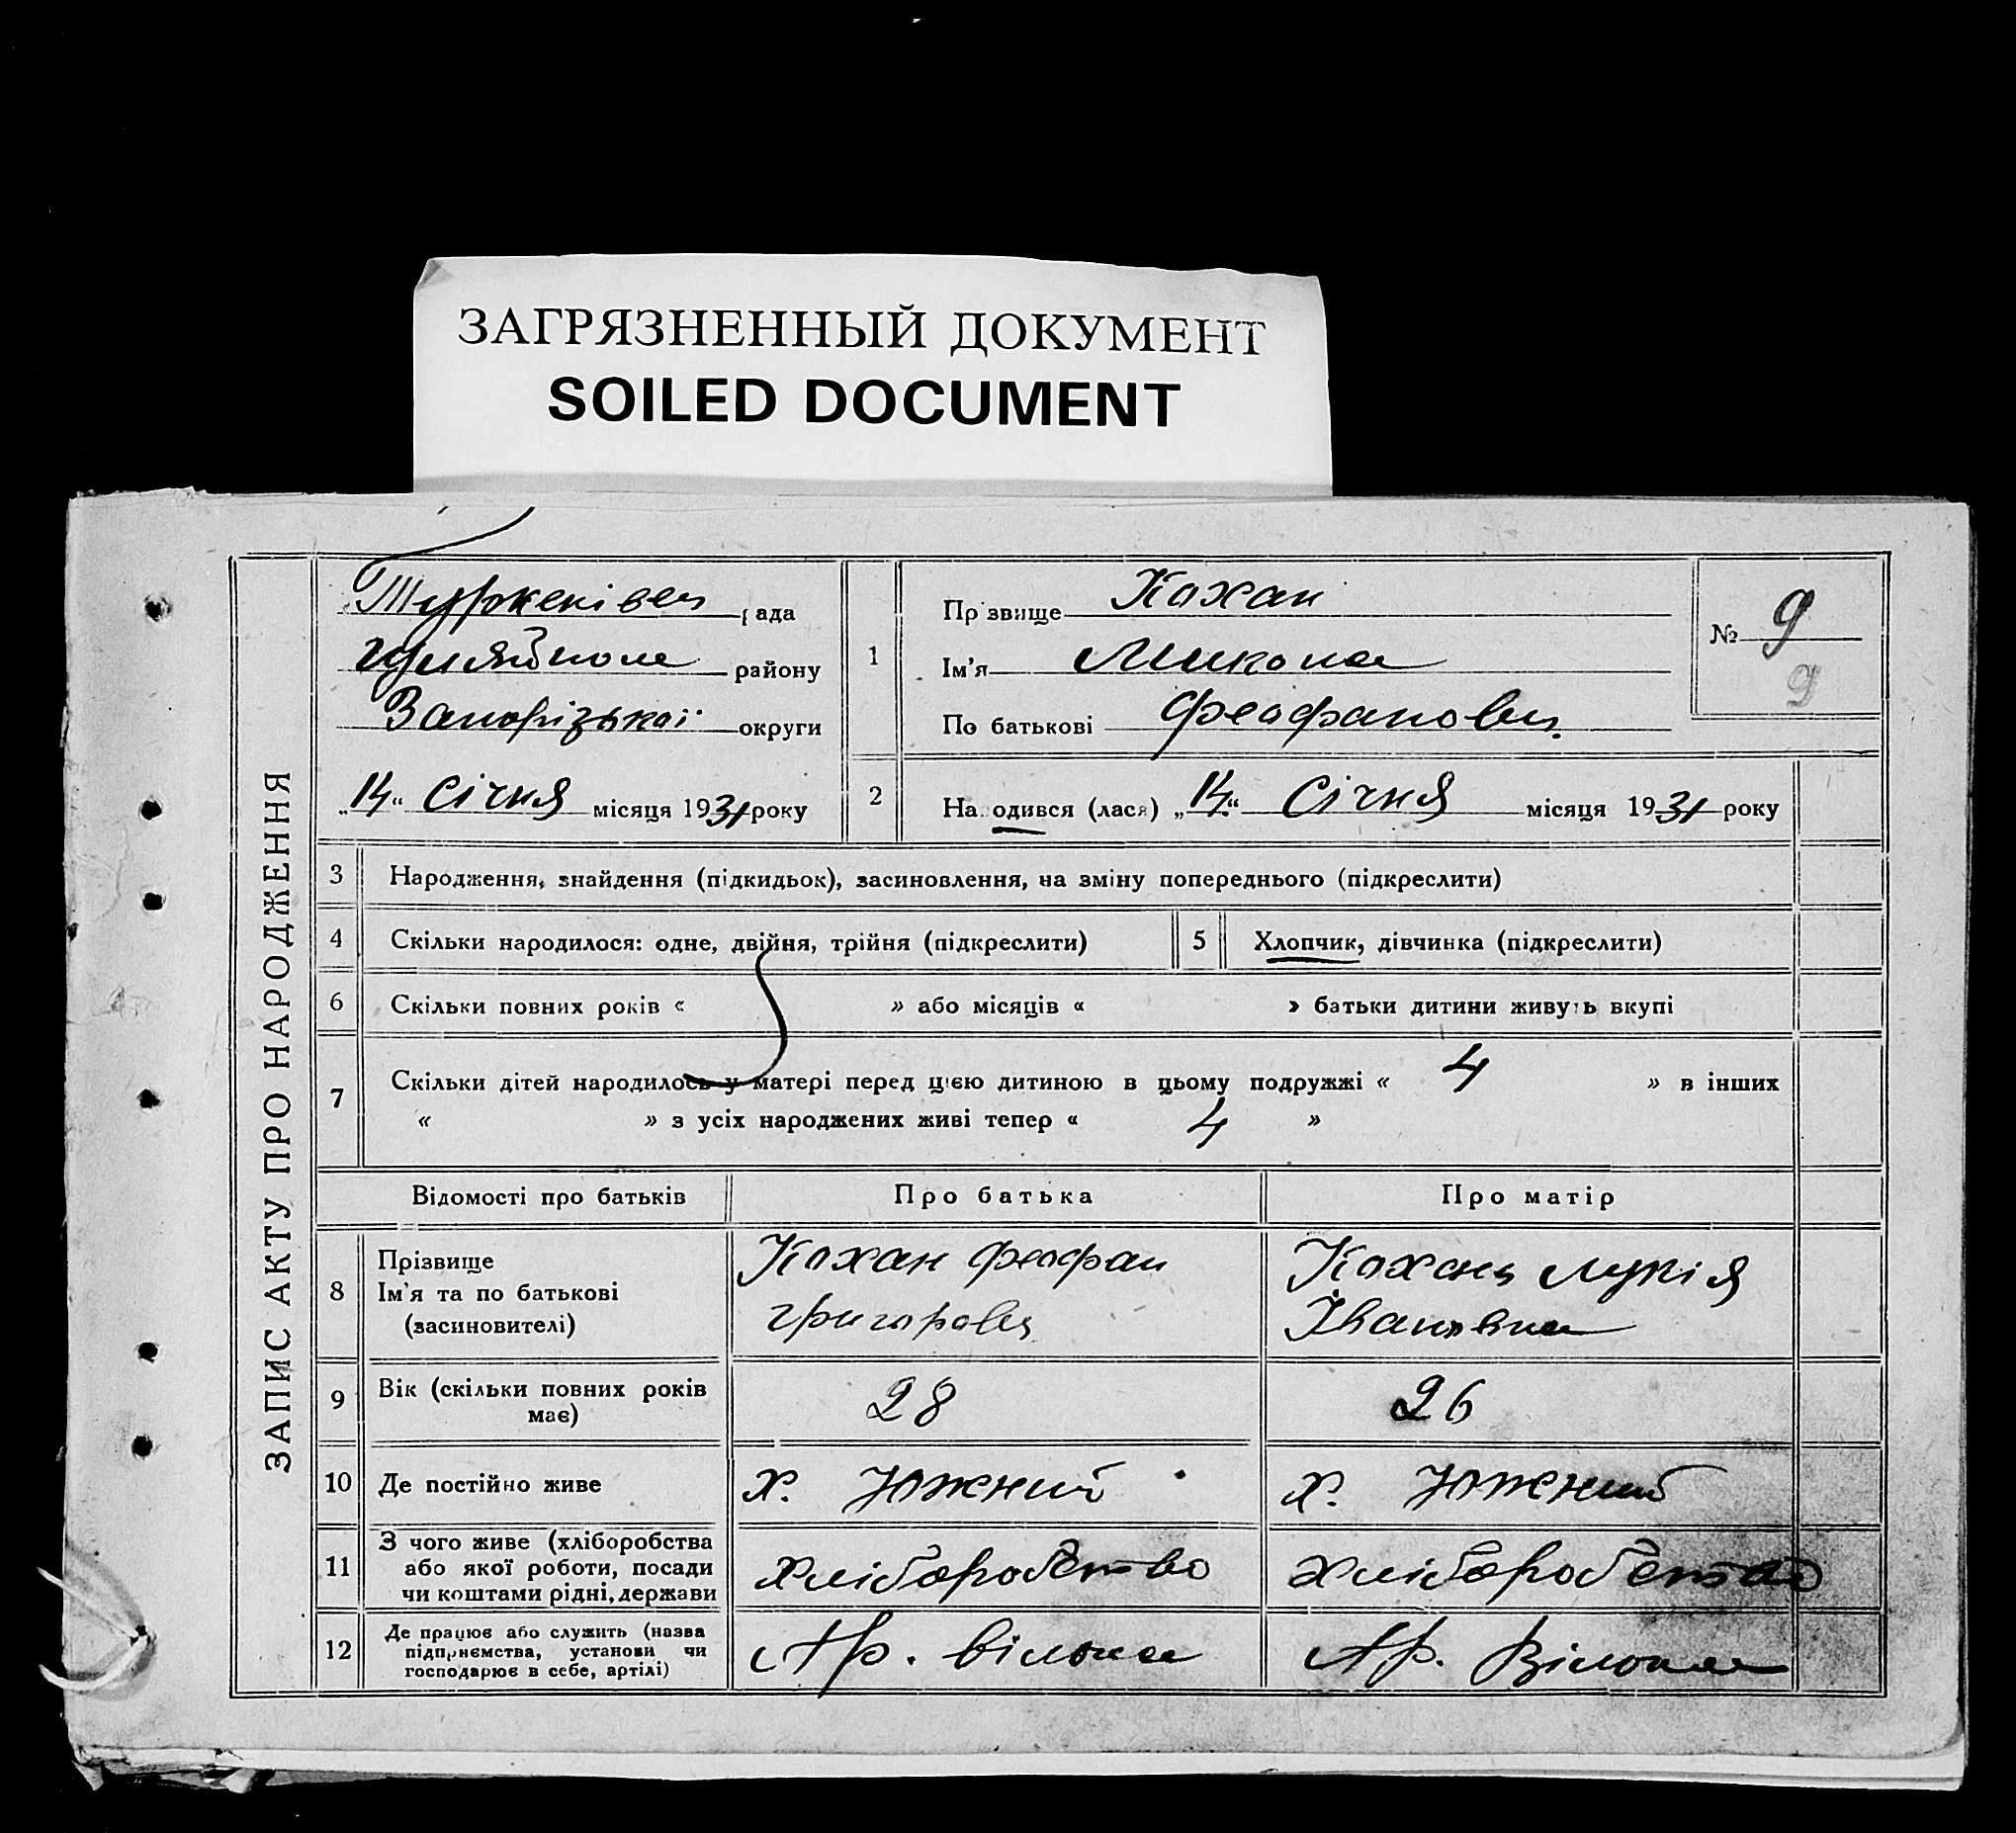 ЗАГРЯЗНЕННЫЙ ДОКУМЕНТ
SOILED DOCUMENT
ЗАПИС АКТУ ПРО НАРОДЖЕННЯ
рада
району
Запорізької округи
„14“ Січня місяця 1931 року
1
Прізвище Кохан
Ім'я Микола
По батькові Феофанович
№ 9
9
2
Народився (лася) „14“ Січня місяця 1931 року
3 Народження, знайдення (підкидьок), засиновлення, на зміну попереднього (підкреслити)
4 Скільки народилося: одне, двійня, трійня (підкреслити)
5 Хлопчик, дівчинка (підкреслити)
6 Скільки повних років « » або місяців « » батьки дитини живуть вкупі
7 Скільки дітей народилось у матері перед цією дитиною в цьому подружжі « 4 » в інших
« » з усіх народжених живі тепер « 4 »
Відомості про батьків Про батька Про матір
8 Прізвище
Ім'я та по батькові
(засиновителі)
Кохан Феофан
Григорович
Кохан Лукія
Івановна
9 Вік (скільки повних років
має)
28
26
10 Де постійно живе
х. Южний
х. Южний
11 З чого живе (хліборобства
або якої роботи, посади
чи коштами рідні, держави
хліборобство
хліборобство
12 Де працює або служить (назва
підприємства, установи чи
господарює в себе, артілі)
Ар.
Ар.